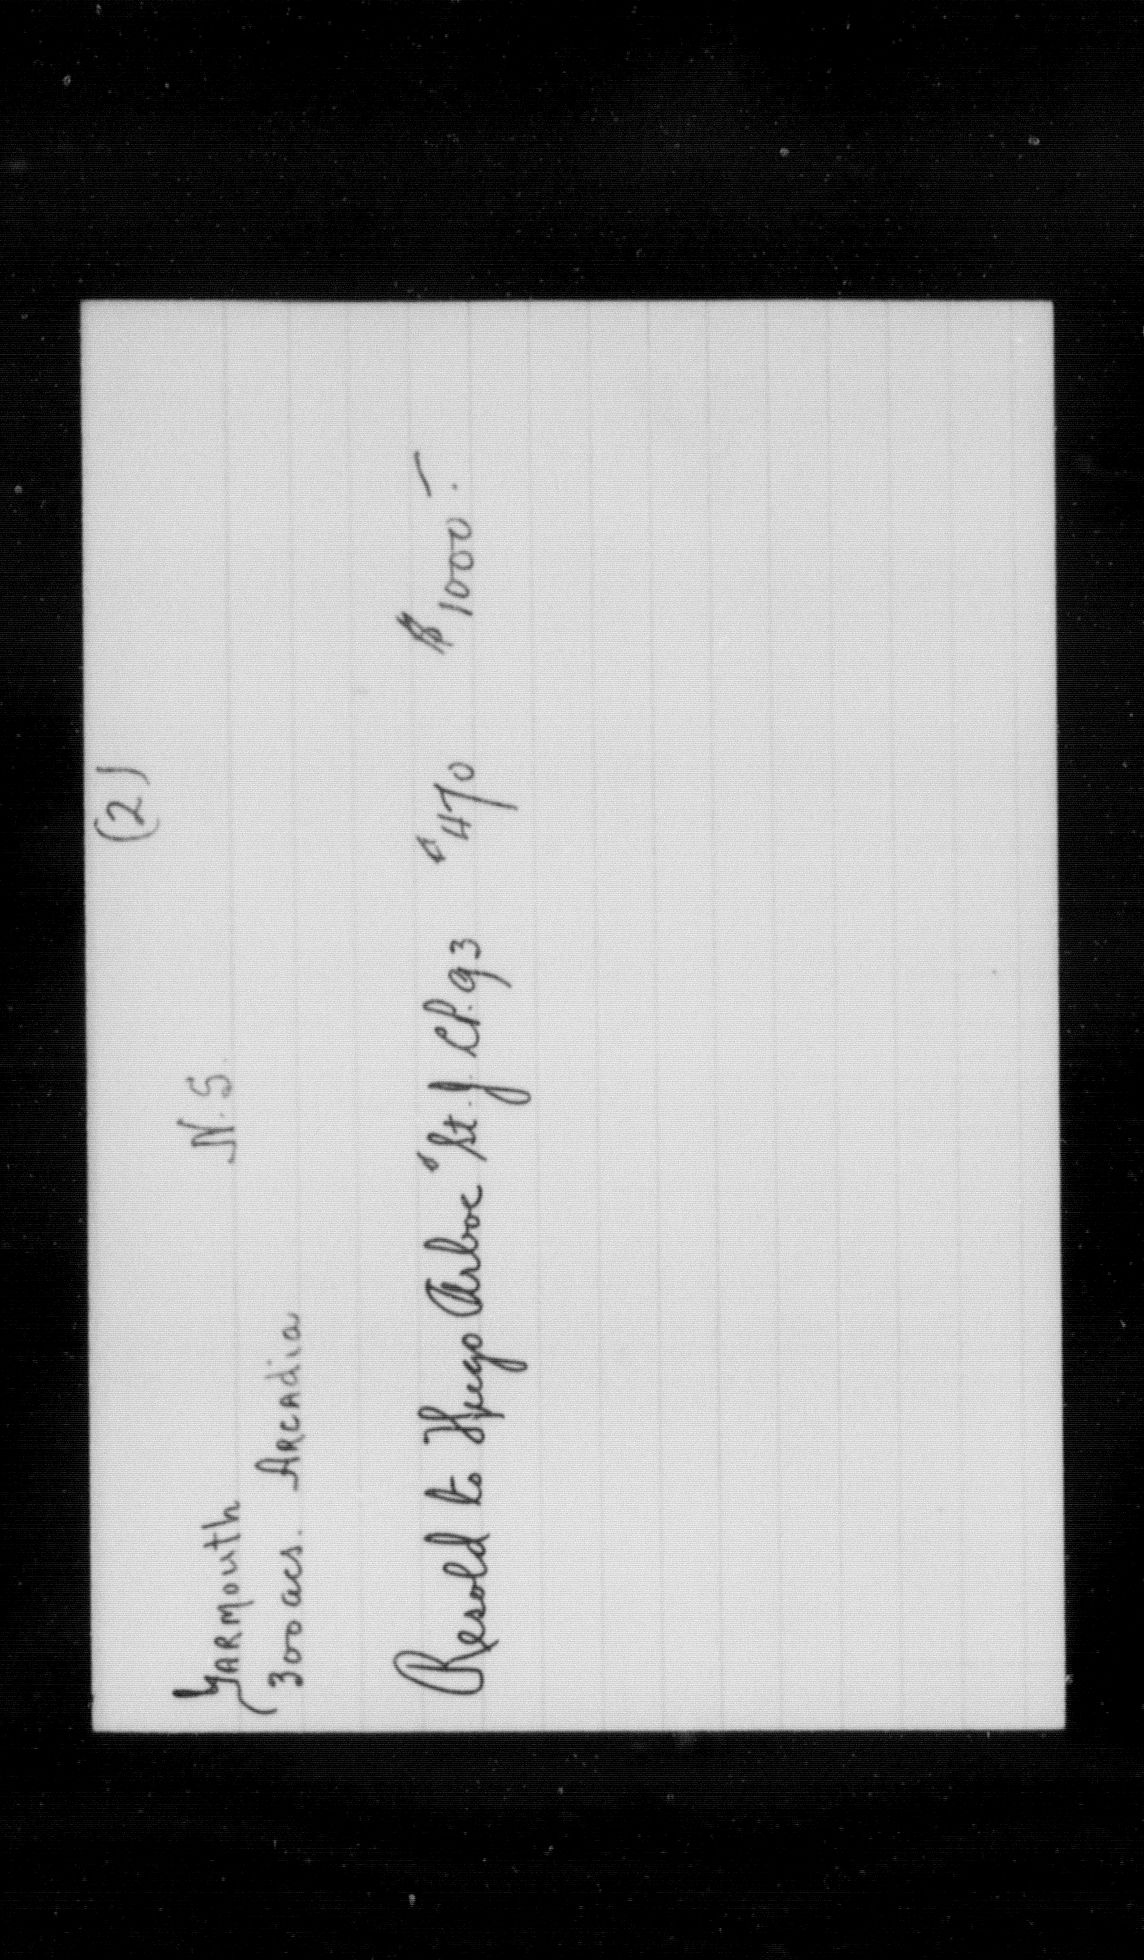 (2)
Yarmouth N.S.
300 acs. Arcadia
Resold to Hugo Arboe St. J. CP. 93 $470 $1000.–